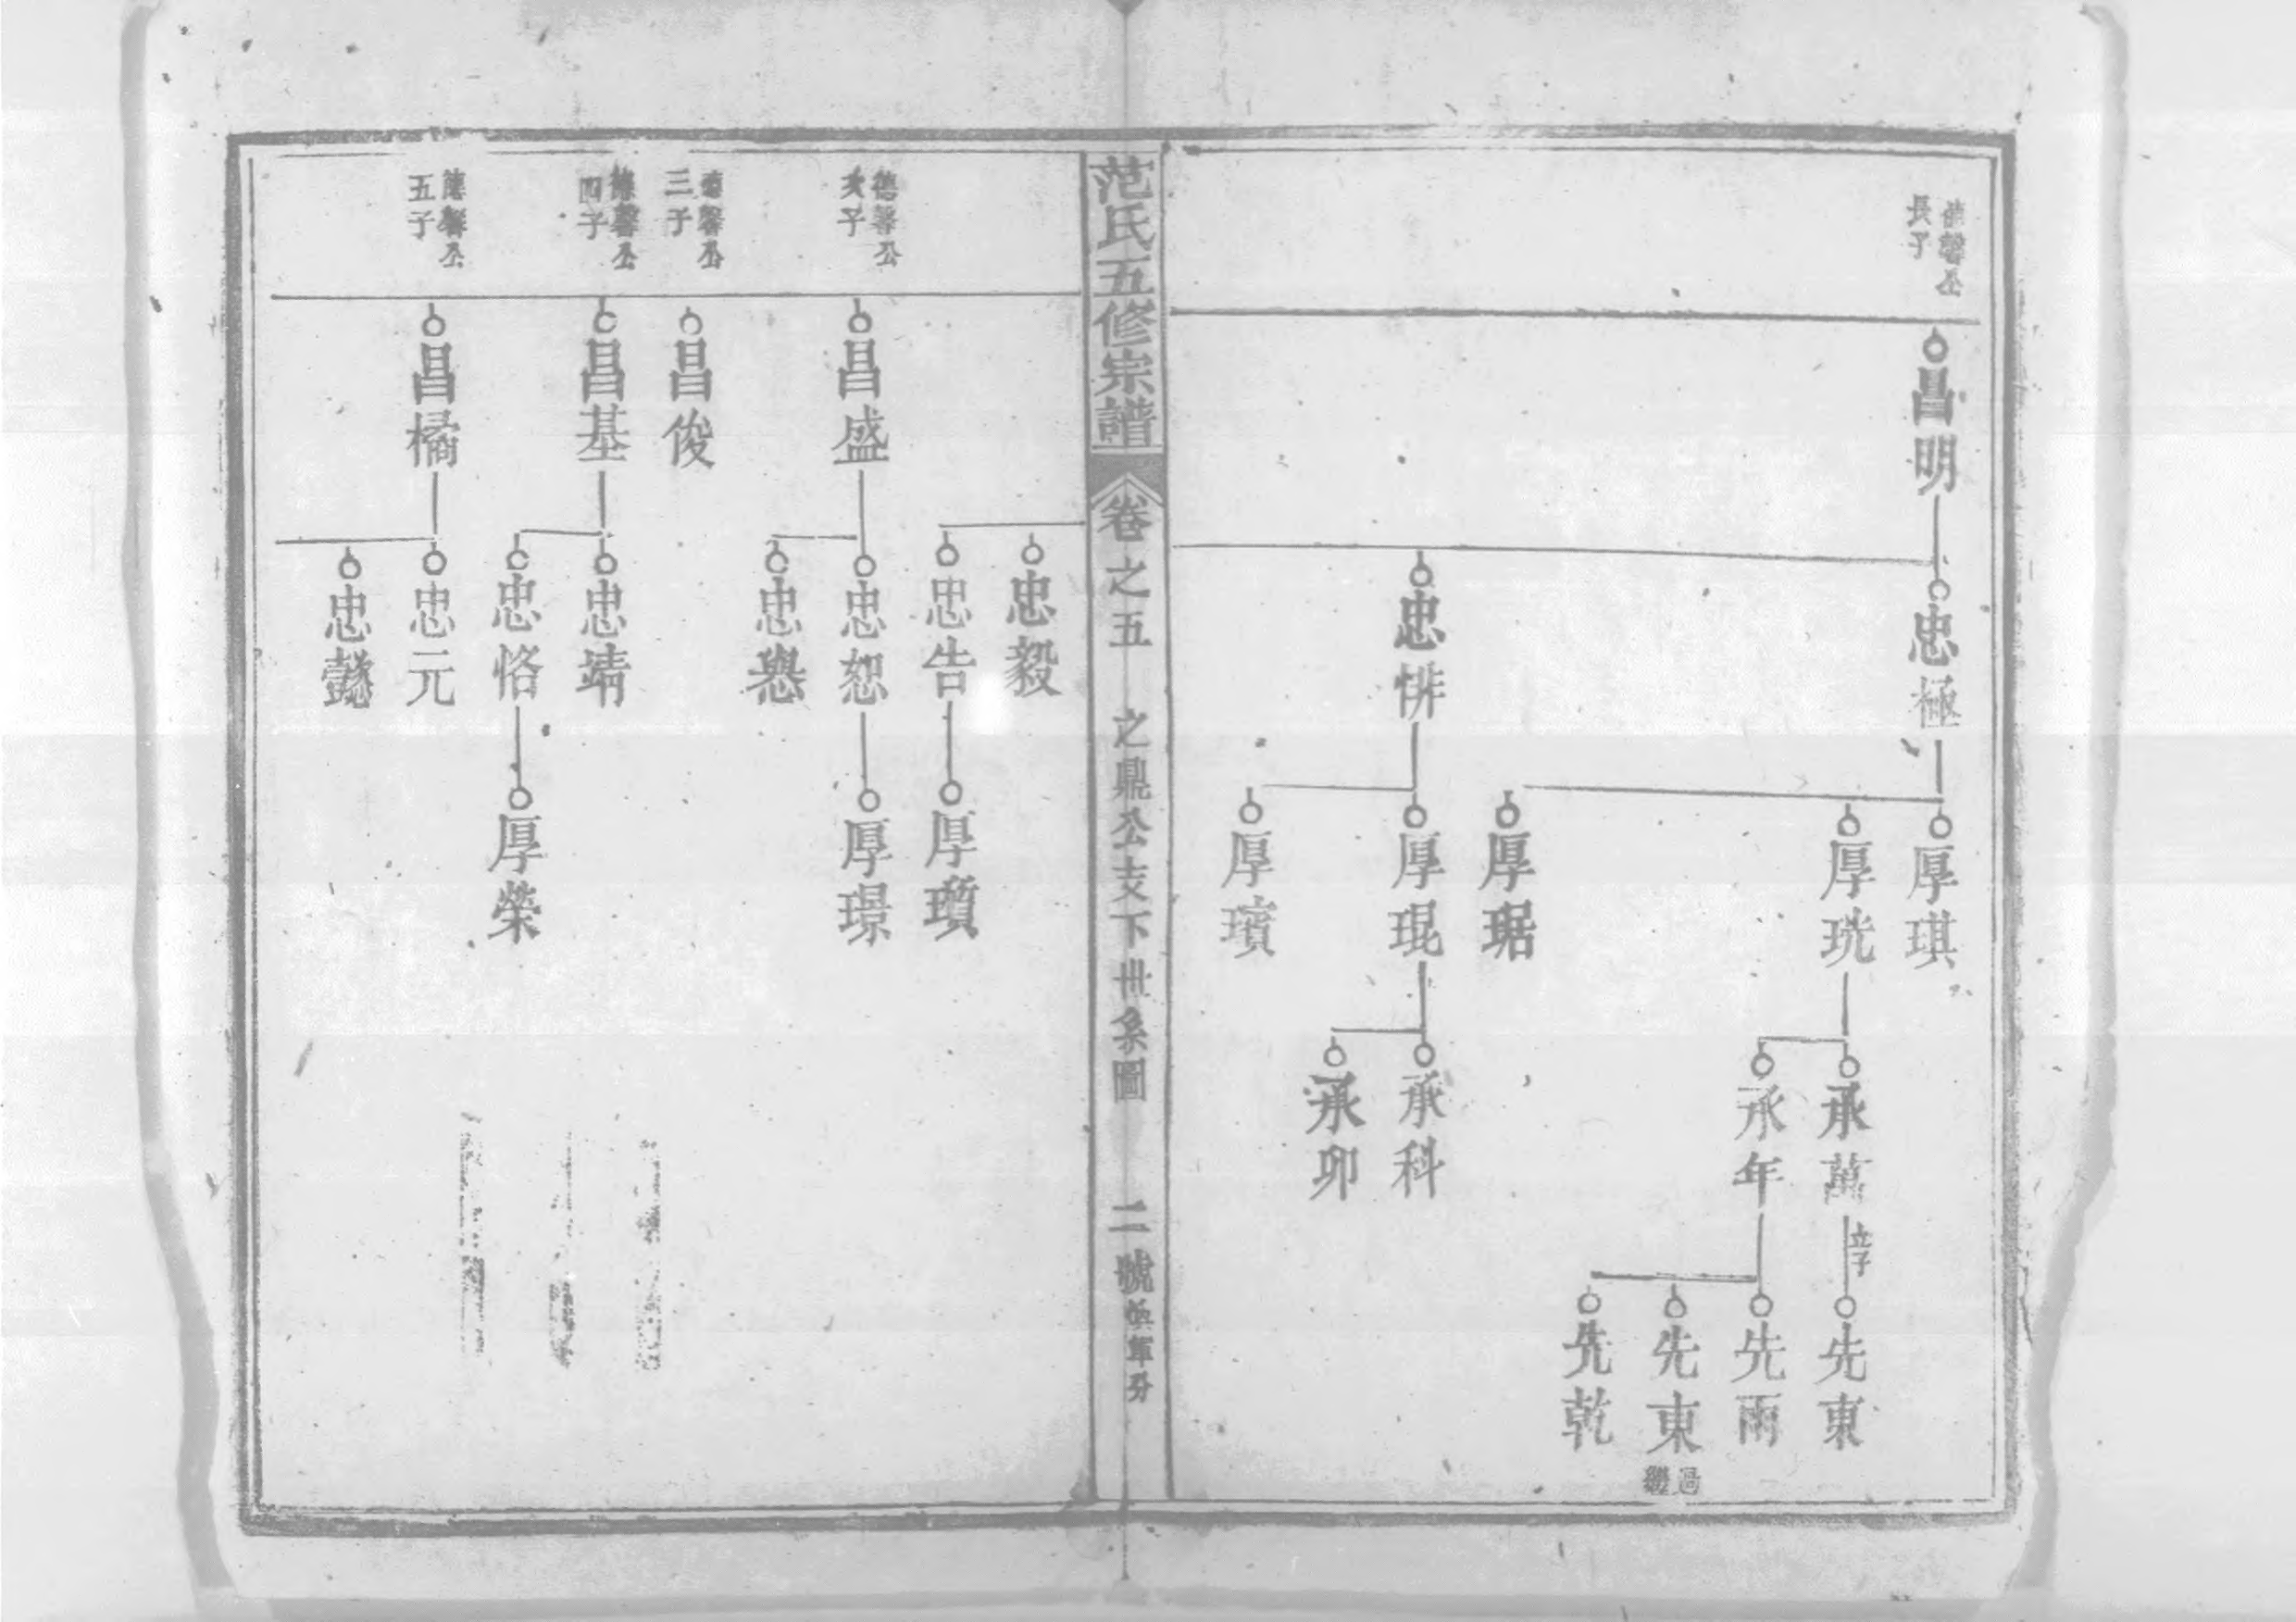 德馨公
長子
昌明
忠極
厚琪
厚珖
承萬
立子
先東
承年
先雨
先東
過繼
先乾
厚琚
忠悱
厚琨
承科
承卯
厚璸
范氏五修宗譜
卷之五
之鼎公支下世系圖
二號
忠毅
忠告
厚瓚
德馨公
次子
昌盛
忠恕
厚璟
忠懋
德馨公
三子
昌俊
德馨公
四子
昌基
忠靖
忠恪
厚榮
德馨公
五子
昌橘
忠元
忠懿